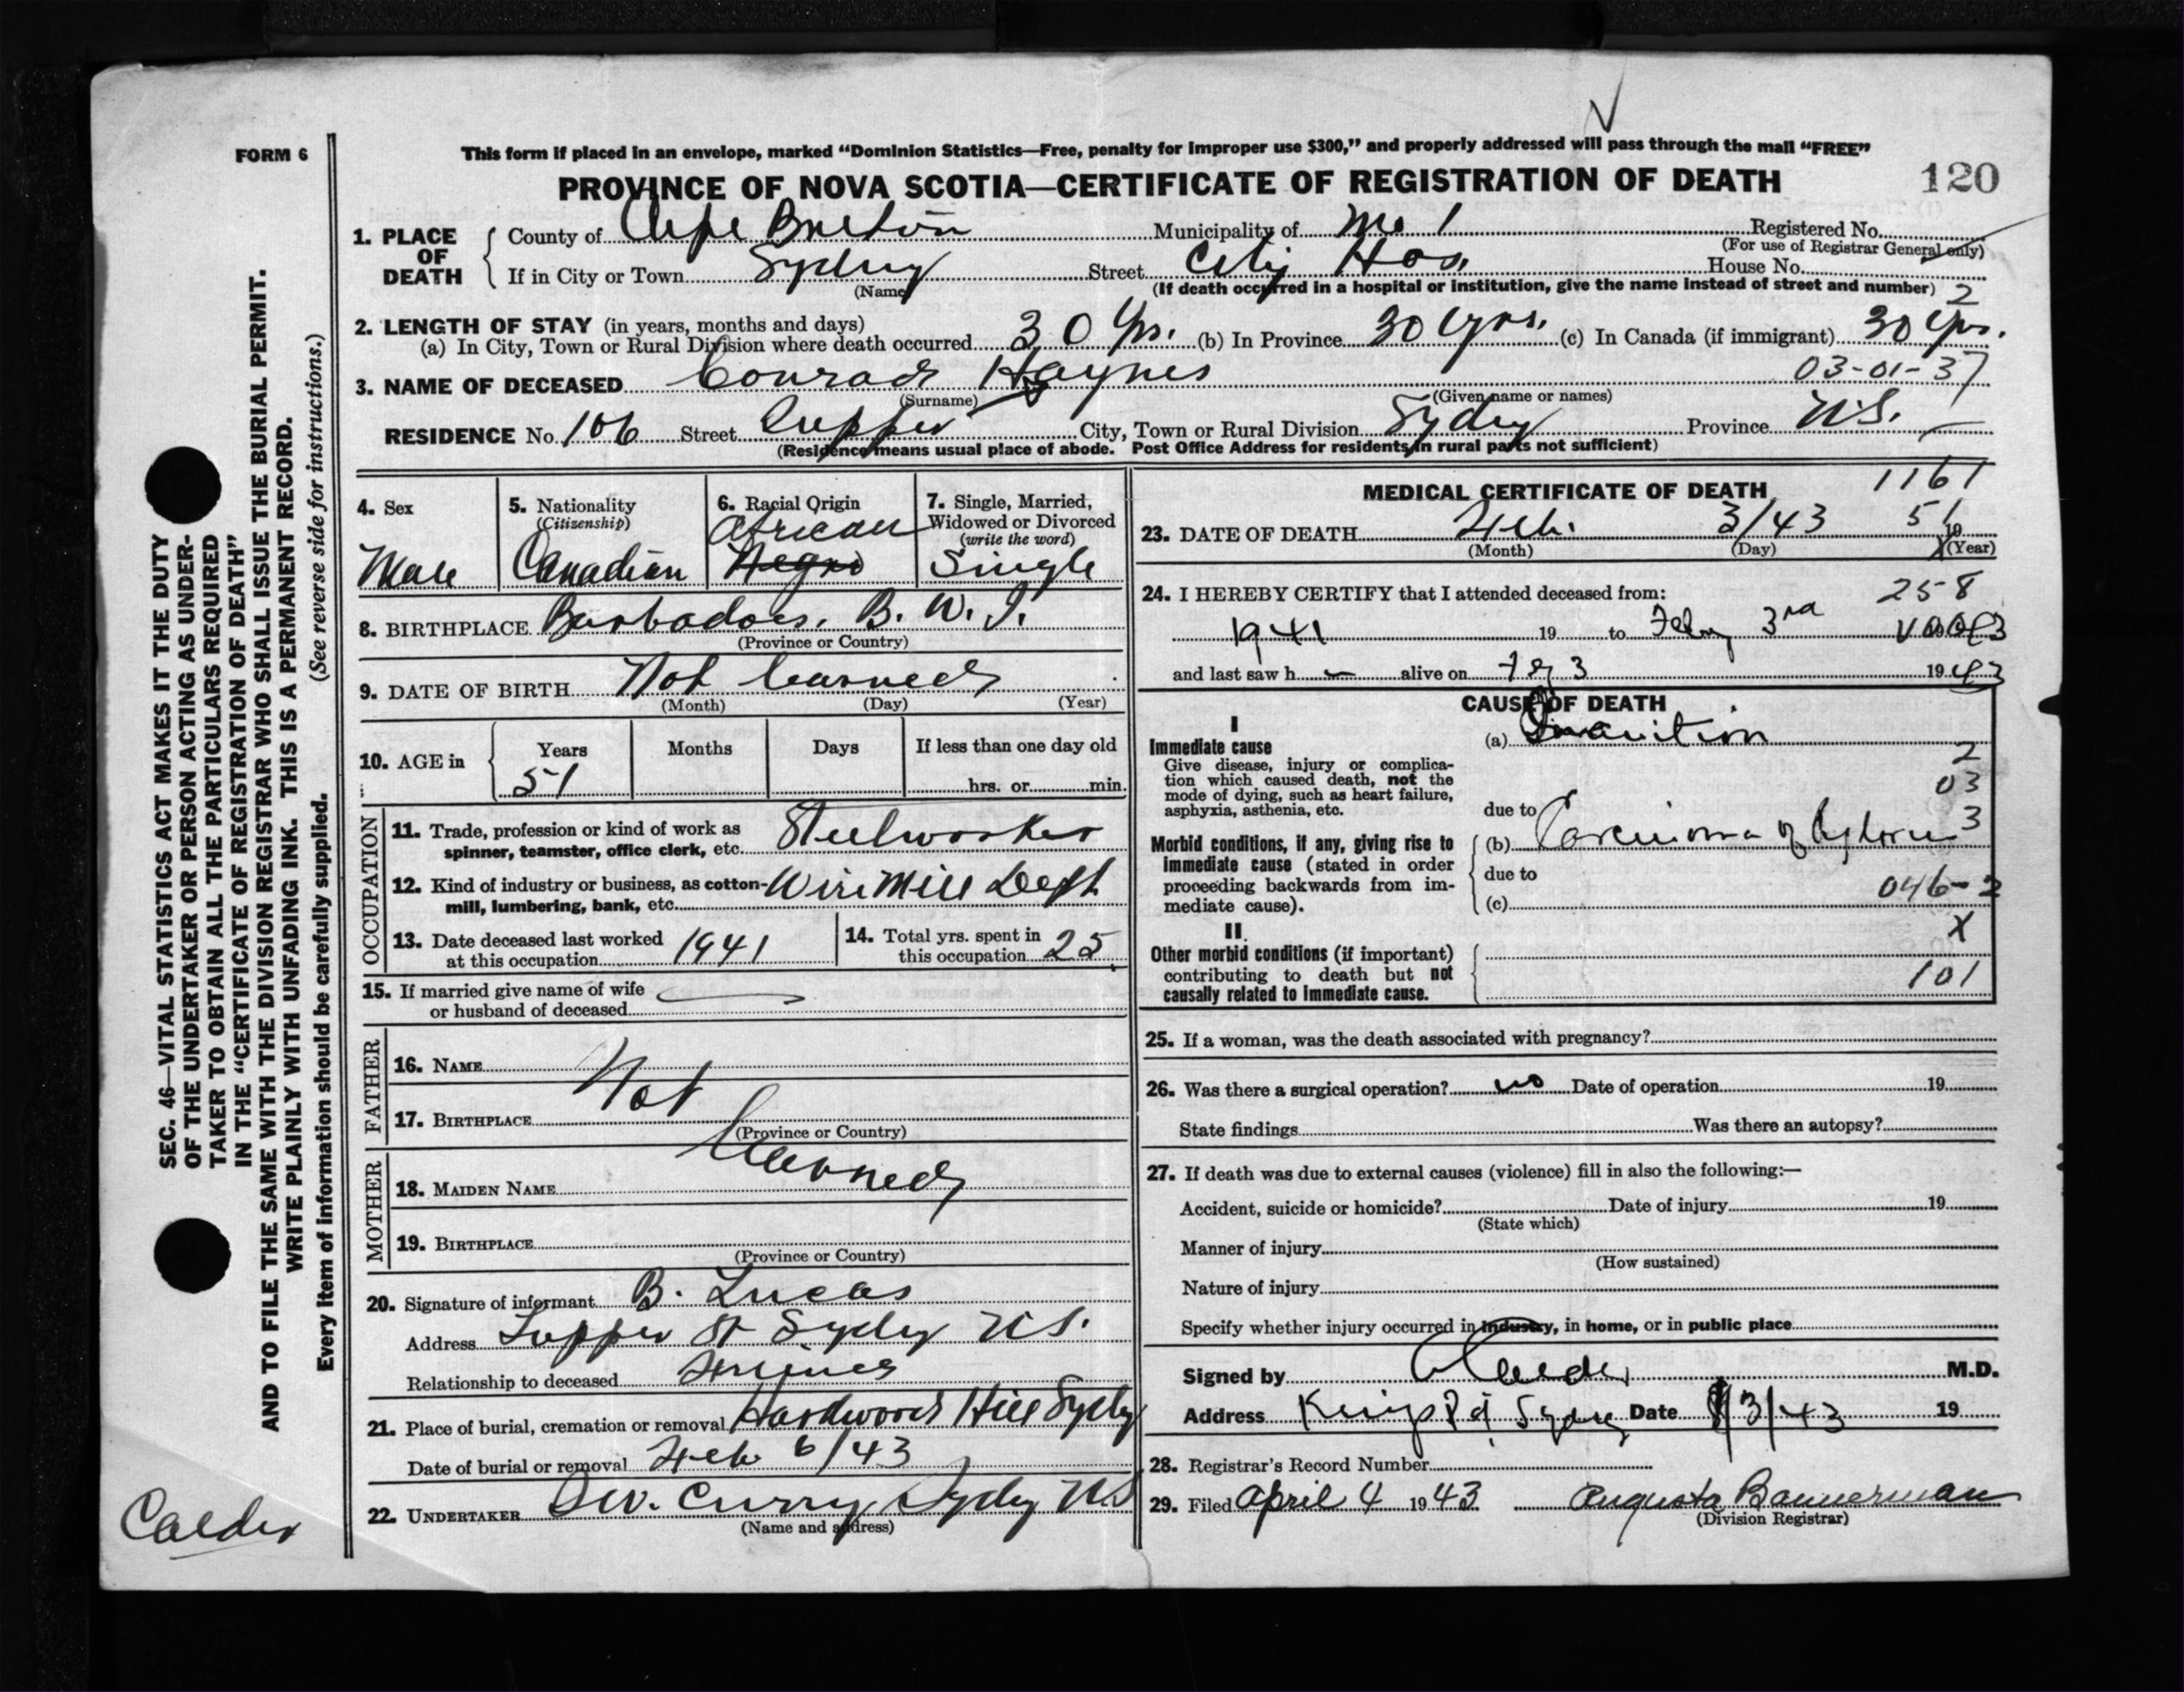 This form if placed in an envelope, marked “Dominion Statistics—Free, penalty for improper use $300,” and properly addressed will pass through the mail “FREE”
FORM 6
PROVINCE OF NOVA SCOTIA—CERTIFICATE OF REGISTRATION OF DEATH 120
1. PLACE OF DEATH
County of Cape Breton Municipality of No 1 Registered No.
(For use of Registrar General only)
If in City or Town Sydney Street City Hos. House No.
(Name) (If death occurred in a hospital or institution, give the name instead of street and number) 2
2. LENGTH OF STAY (in years, months and days)
(a) In City, Town or Rural Division where death occurred 30 Yrs. (b) In Province 30 yrs. (c) In Canada (if immigrant) 30 yrs.
3. NAME OF DECEASED Conrad Haynes 03-01-37
(Surname) (Given name or names)
RESIDENCE No. 106 Street City, Town or Rural Division Sydney Province N.S.
(Residence means usual place of abode. Post Office Address for residents in rural parts not sufficient)
4. Sex
Male
5. Nationality
(Citizenship)
Canadian
6. Racial Origin
African
Negro
7. Single, Married, Widowed or Divorced
(write the word)
Single
8. BIRTHPLACE Barbadoes. B. W. I.
(Province or Country)
9. DATE OF BIRTH Not learned
(Month) (Day) (Year)
10. AGE in Years Months Days If less than one day old
51 hrs. or min.
OCCUPATION
11. Trade, profession or kind of work as spinner, teamster, office clerk, etc. Steelworker
12. Kind of industry or business, as cotton-mill, lumbering, bank, etc. Wire Mill Dept
13. Date deceased last worked at this occupation 1941
14. Total yrs. spent in this occupation 25
15. If married give name of wife or husband of deceased
FATHER
16. NAME Not
17. BIRTHPLACE
(Province or Country)
MOTHER
Learned
18. MAIDEN NAME
19. BIRTHPLACE
(Province or Country)
20. Signature of informant B. Lucas
Address St Sydney N.S.
Relationship to deceased
21. Place of burial, cremation or removal Hardwood Hill Sydney
Date of burial or removal Feb 6/43
22. UNDERTAKER Curry, Sydney N.S
(Name and address)
MEDICAL CERTIFICATE OF DEATH 1161
23. DATE OF DEATH Feb. 3/43 51 19
(Month) (Day) X (Year)
24. I HEREBY CERTIFY that I attended deceased from: 258
1941 19 to Feby 3rd
and last saw h alive on 3 1943
CAUSE OF DEATH
I
Immediate cause
Give disease, injury or complication which caused death, not the mode of dying, such as heart failure, asphyxia, asthenia, etc.
(a) Inanition
2
03
3
due to
Morbid conditions, if any, giving rise to immediate cause (stated in order proceeding backwards from immediate cause).
(b) Carcinoma of
due to
(c) 046-2
X
II.
Other morbid conditions (if important) contributing to death but not causally related to immediate cause.
101
25. If a woman, was the death associated with pregnancy?
26. Was there a surgical operation? no Date of operation 19
State findings Was there an autopsy?
27. If death was due to external causes (violence) fill in also the following:—
Accident, suicide or homicide? Date of injury 19
(State which)
Manner of injury
(How sustained)
Nature of injury
Specify whether injury occurred in industry, in home, or in public place
Signed by Calder M.D.
Address Kings Rd, Sydney Date 3/43 19
28. Registrar's Record Number
29. Filed April 4 1943 Augusta Bannerman
(Division Registrar)
SEC. 46—VITAL STATISTICS ACT MAKES IT THE DUTY
OF THE UNDERTAKER OR PERSON ACTING AS UNDER-
TAKER TO OBTAIN ALL THE PARTICULARS REQUIRED
IN THE “CERTIFICATE OF REGISTRATION OF DEATH”
AND TO FILE THE SAME WITH THE DIVISION REGISTRAR WHO SHALL ISSUE THE BURIAL PERMIT.
WRITE PLAINLY WITH UNFADING INK. THIS IS A PERMANENT RECORD.
Every item of information should be carefully supplied. (See reverse side for instructions.)
Calder